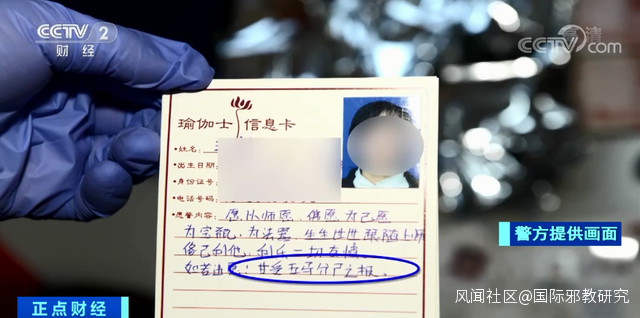 CCTV 2
财经
CCTV.com
高清
瑜伽士 信息卡
•姓名:
•出生日期
•身份证号:
•电话号码
•愿誓内容: 愿以师愿、佛愿为己愿
为宝瓶, 为法器, 生生世世跟随上师
修己利他, 利乐一切有情。
如若违 : 甘受五马分尸之报。
警方提供画面
正点财经
风闻社区@国际邪教研究